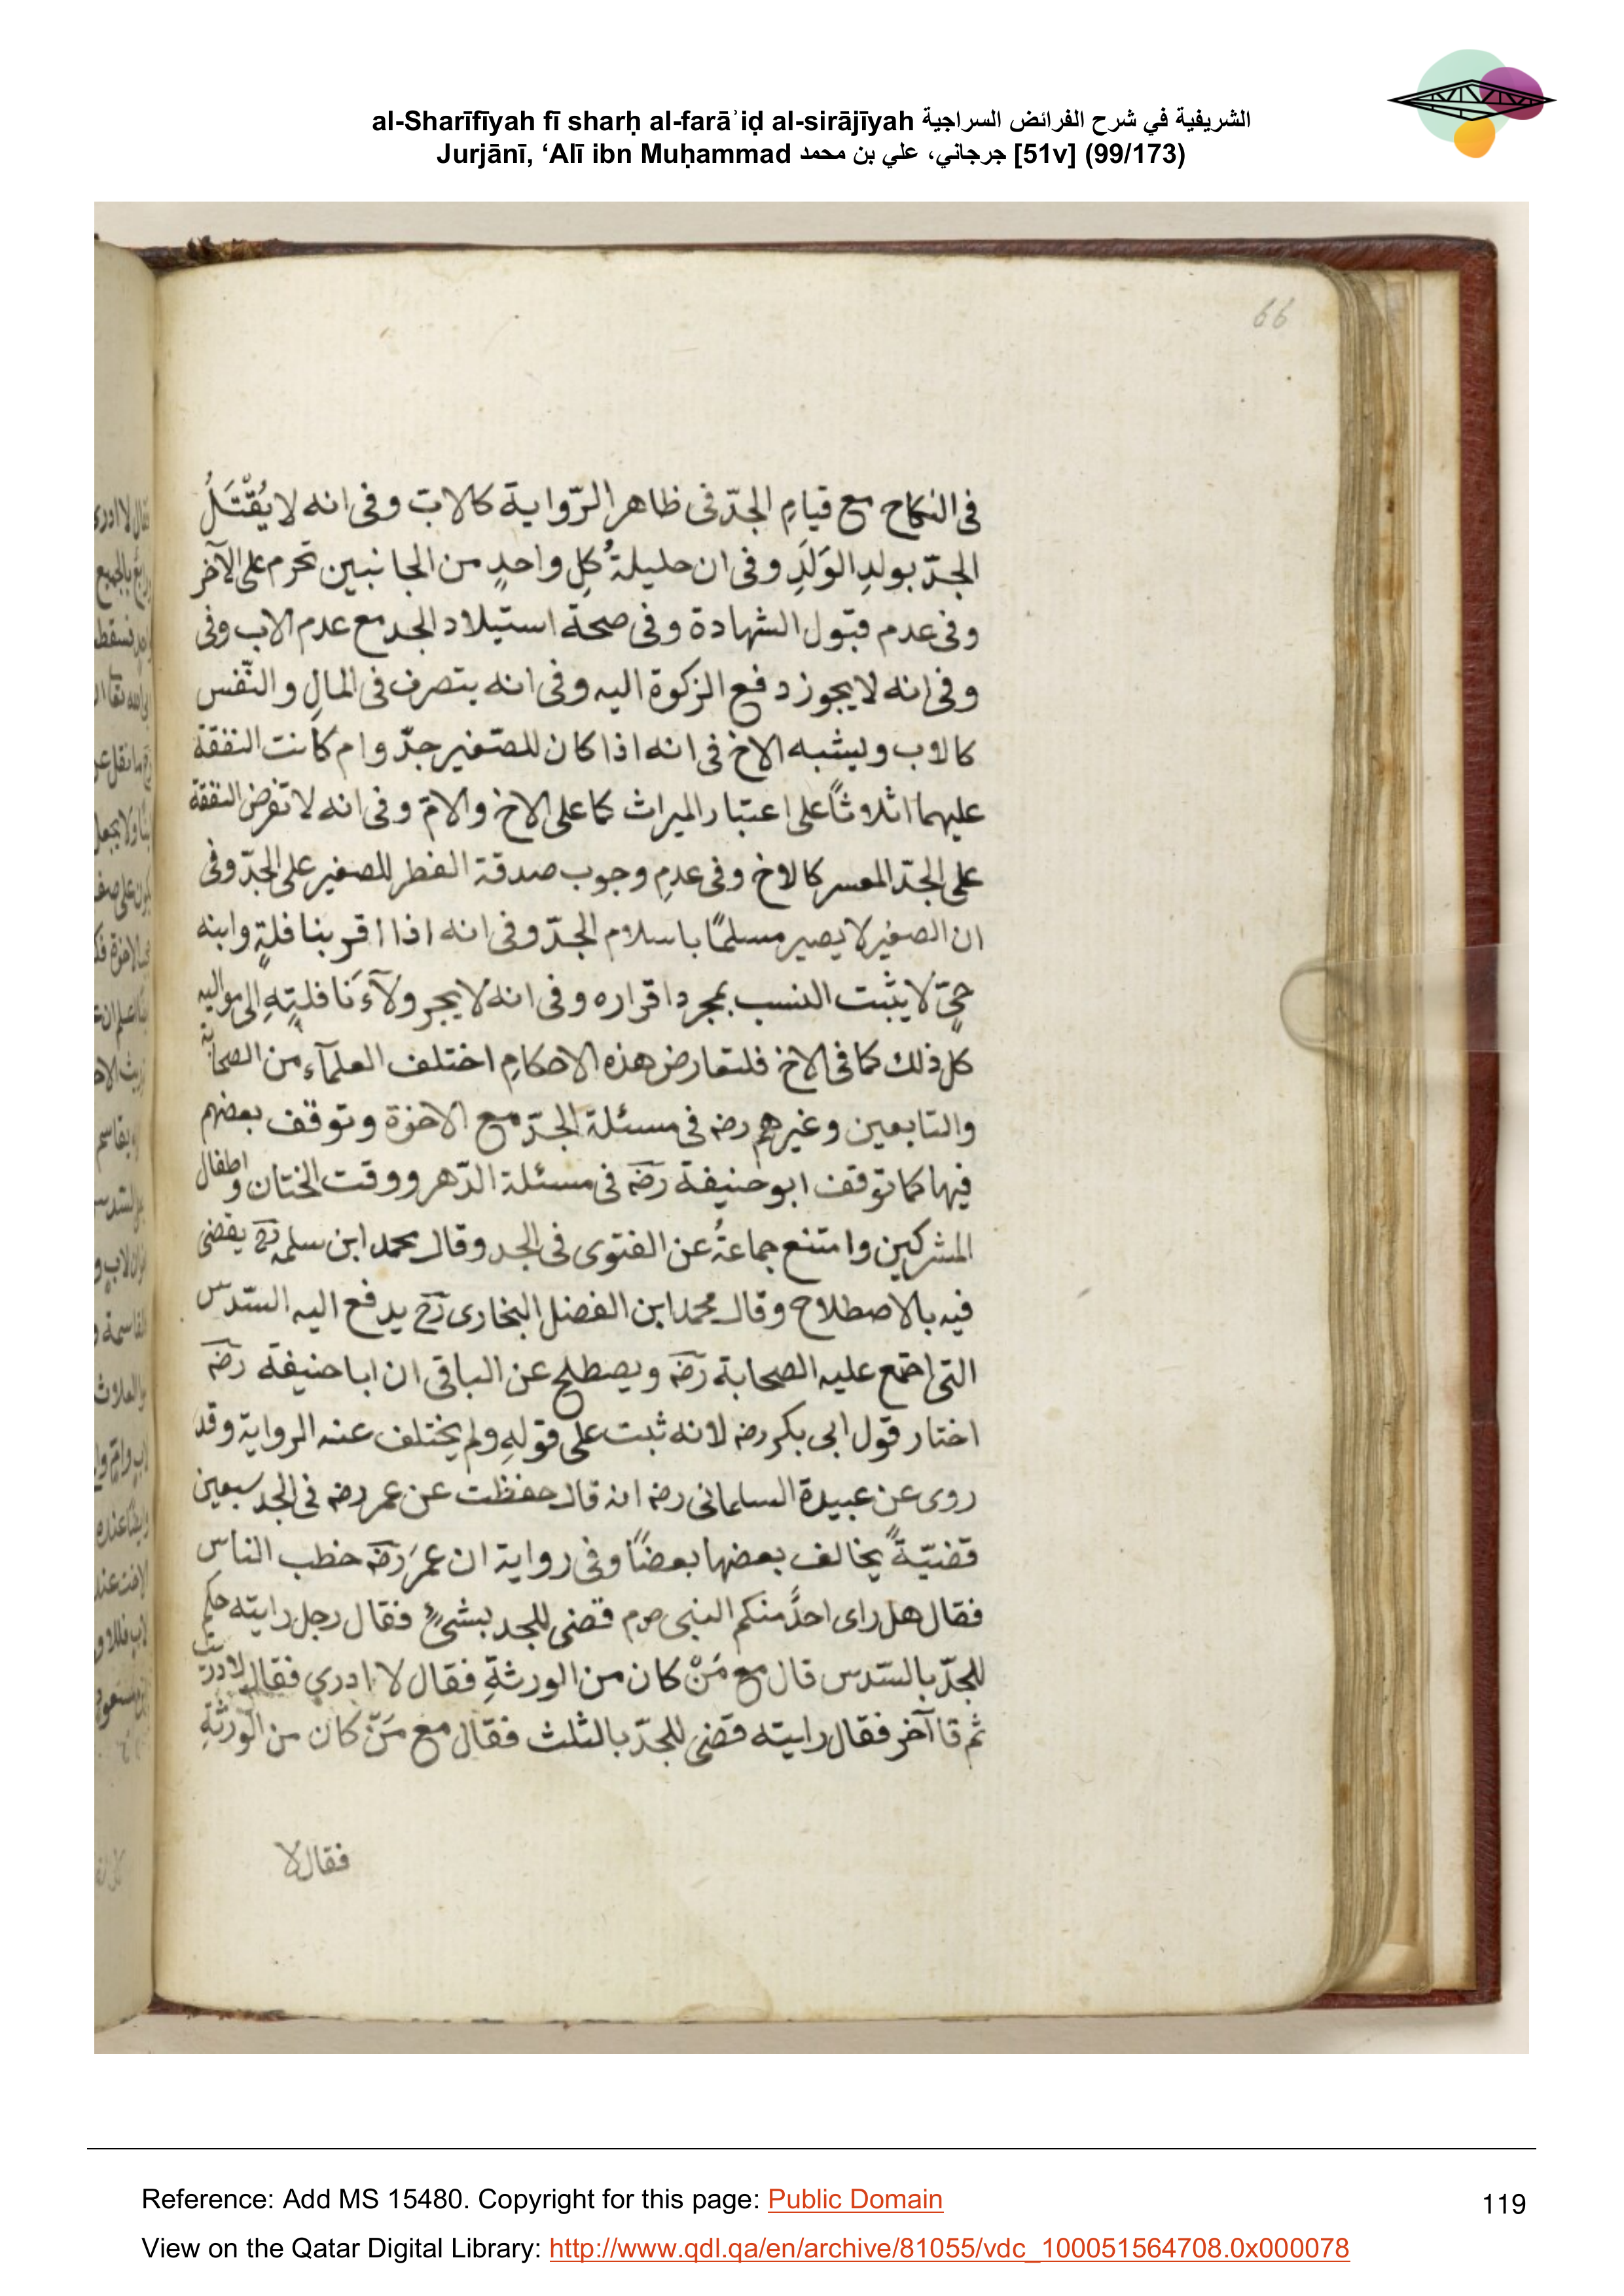 al-Sharīfīyah fī sharḥ al-farāʾiḍ al-sirājīyah الشريفية في شرح الفرائض السراجية
Jurjānī, ‘Alī ibn Muḥammad جرجاني، علي بن محمد [51v] (99/173)
66
فى النكاح مع قيامِ الجدّ فى ظاهر الرّواية كالاب وفى انه لا يُقْتَلُ
الجدّ بولدِ الوَلَدِ وفى ان حليلةُ كلِ واحدٍ من الجانبين تحرم على الآخر
وفى عدم قبول الشهادة وفى صحة استيلاد الجد مع عدم الاب وفى
وفى انه لا يجوز دفع الزكوة اليه وفى انه يتصرف فى المالِ والنّفس
كالاب ويشبه الاخ فى انه اذا كان للصّغير جدّ وام كانت النفقة
عليهما اثلاثاً على اعتبار الميراث كما على الاخ والامّ وفى انه لا تفرض النفقة
على الجدّ المعسر كالاخ وفى عدمِ وجوب صدقة الفطر للصغير على الجدّ وفى
ان الصغير لا يصير مسلمًا باسلام الجدّ وفى انه اذا اقر بنافلةٍ وابنه
حىّ لا يثبت النسب بمجرد اقراره وفى انه لا يجر ولآءَ نَافلتِهِ الى مواليه
كل ذلك كما فى الاخ فلتعارض هذه الاحكامِ اختلف العلمآء من الصحابة
والتابعين وغيرهم رضه فى مسئلة الجدّ مع الاخوة وتوقف بعضهم
فيها كما توقف ابو حنيفة رضه فى مسئلة الدّهر ووقت الختان واطفال
المشركين وامتنع جماعةُ عن الفتوى فى الجد وقال محمد ابن سلمه رح يقضى
فيه بالاصطلاح وقال محمد ابن الفضل البخارى رح يدفع اليه السّدس
التى اجمع عليه الصحابة رضه ويصطلح عن الباقى ان ابا حنيفة رضه
اختار قول ابى بكر رضه لانه ثبت على قولهِ ولم يختلف عنه الرواية وقد
روى عن عبيدة السلمانى رضه انه قال حفظت عن عمر رضه فى الجد سبعين
قضيّةً يخالف بعضها بعضًا وفى رواية ان عمرَ رضه خطب الناس
فقال هل راى احدً منكم النبى صم قضى للجد بشئٍ فقال رجل رايته حكم
للجدّ بالسّدس قال مع مَنْ كان من الورثةِ فقال لا ادرى فقال لا دريت
ثم قا آخر فقال رايته قضى للجدّ بالثلث فقال مع مَنّ كان من الورثةِ
فقال لا
Reference: Add MS 15480. Copyright for this page: Public Domain
119
View on the Qatar Digital Library: http://www.qdl.qa/en/archive/81055/vdc_100051564708.0x000078